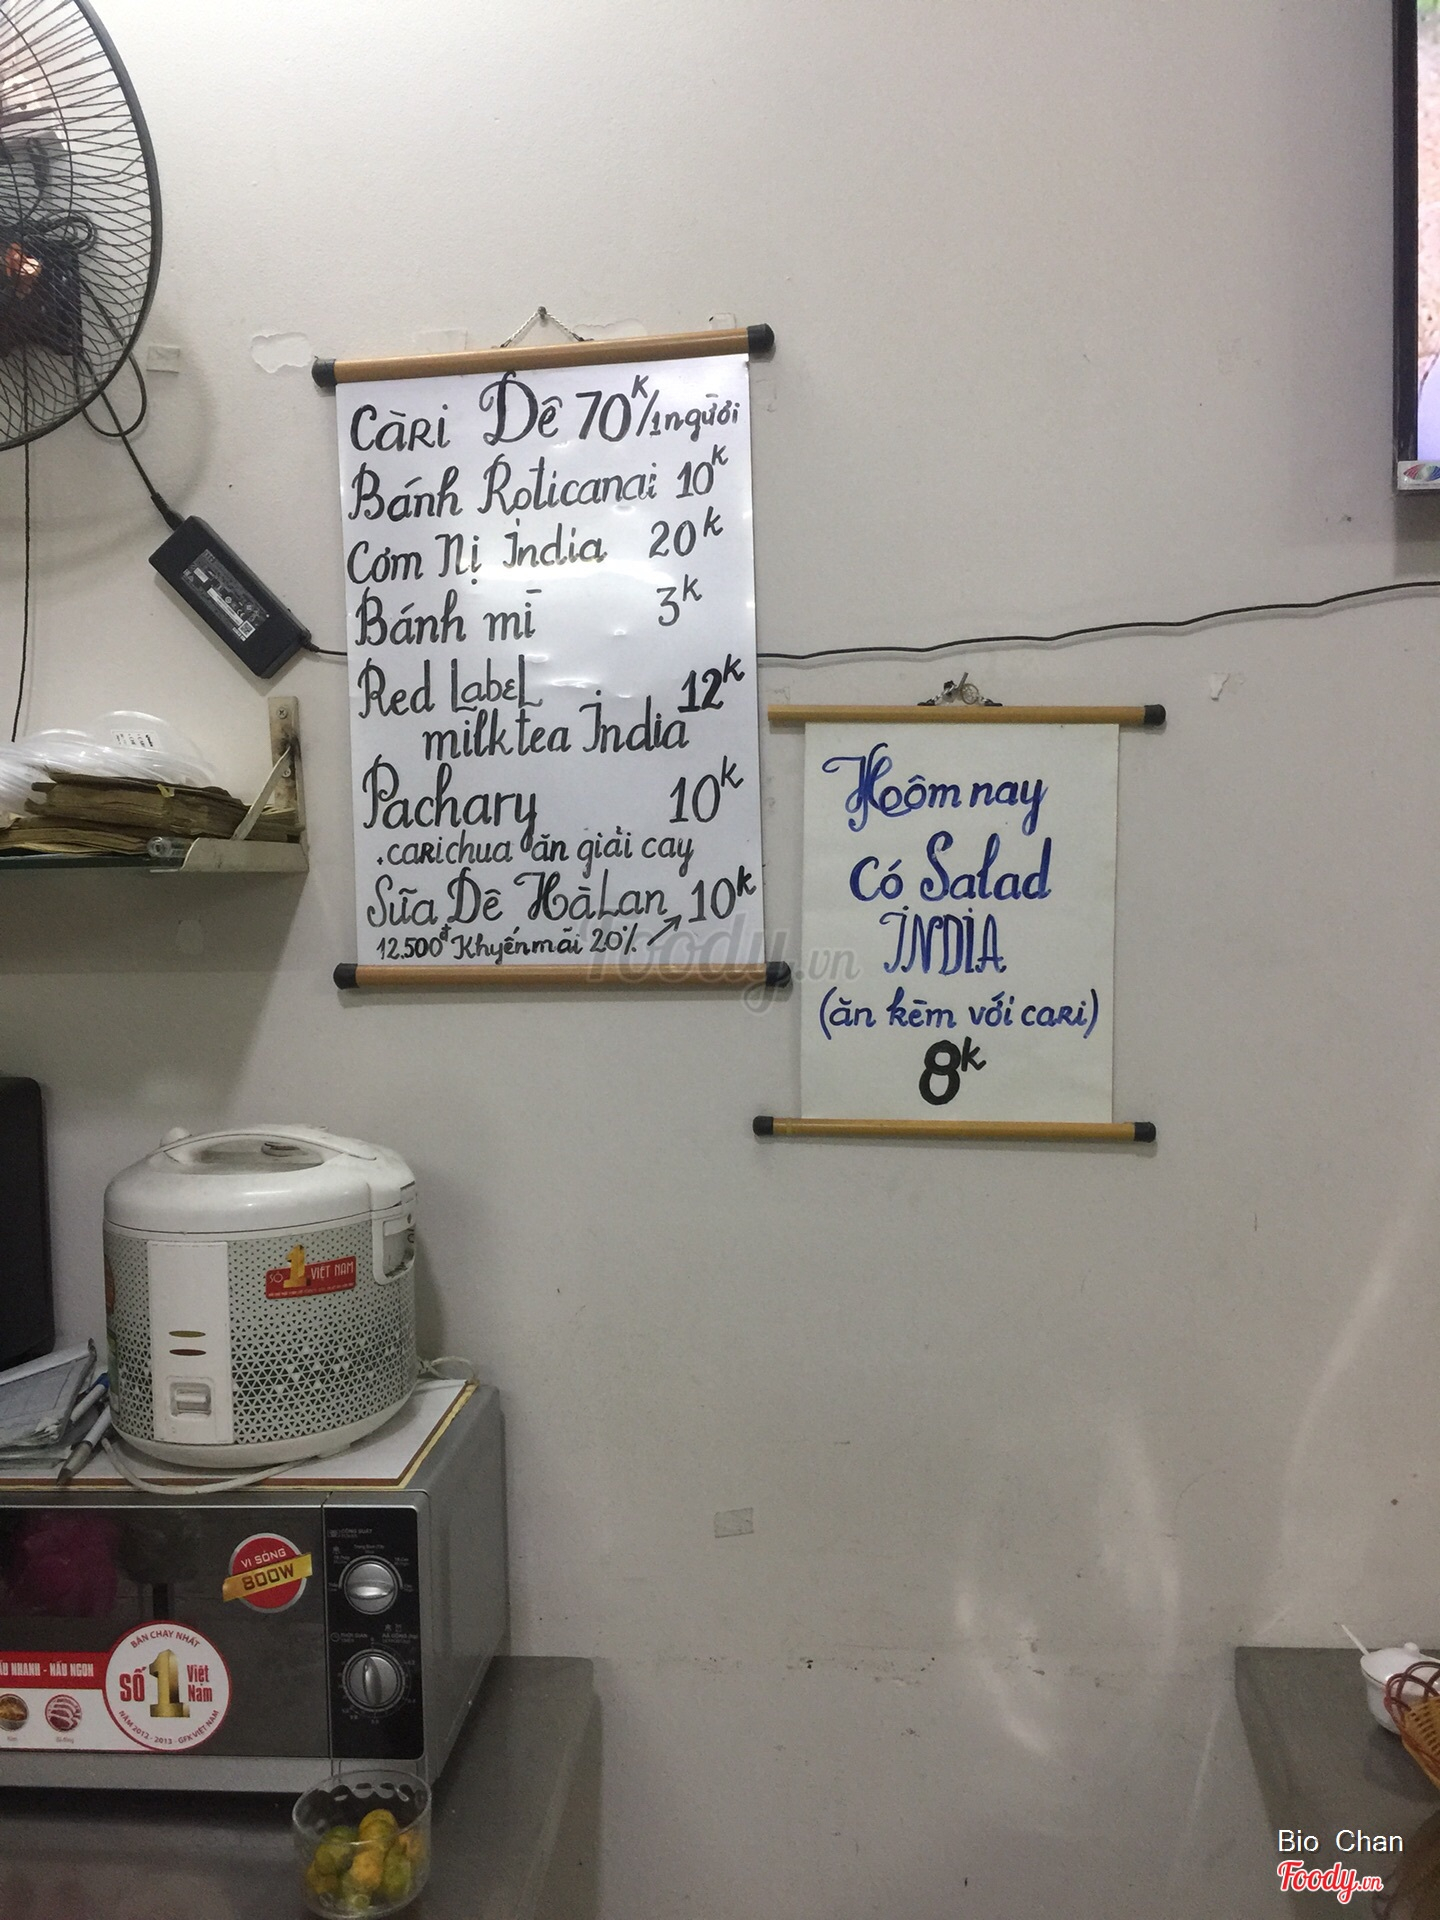 Càri Dê 70k/1người
Bánh Roticanai 10k
Cơm Nị India 20k
Bánh mì 3k
Red Label 12k
milktea India
Pachary 10k
.carichua ăn giải cay
Sữa Dê HàLan 10k
12.500đ Khuyến mãi 20% ↗
Hoôm nay
Có Salad
INDIA
(ăn kèm với cari)
8k
Foody.vn
SỐ 1 VIỆT NAM
VI SÓNG
800W
BÁN CHẠY NHẤT
SỐ 1 Việt Nam
NĂM 2012 - 2013 - GFK VIỆT NAM
NẤU NHANH - NẤU NGON
Bio Chan
Foody.vn